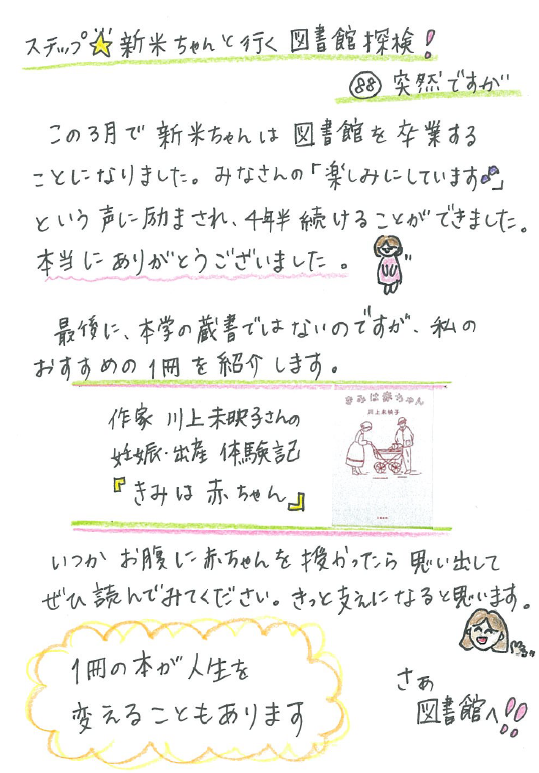 ステップ☆新米ちゃんと行く図書館探検!
88 突然ですが
この3月で新米ちゃんは図書館を卒業する
ことになりました。みなさんの「楽しみにしています♪」
という声に励まされ、4年半続けることができました。
本当にありがとうございました。
最後に、本学の蔵書ではないのですが、私の
おすすめの1冊を紹介します。
作家 川上未映子さんの
妊娠・出産 体験記
『きみは赤ちゃん』
きみは赤ちゃん
川上未映子
いつかお腹に赤ちゃんを授かったら思い出して
ぜひ読んでみてください。きっと支えになると思います。
1冊の本が人生を
変えることもあります
さぁ
図書館へ!!